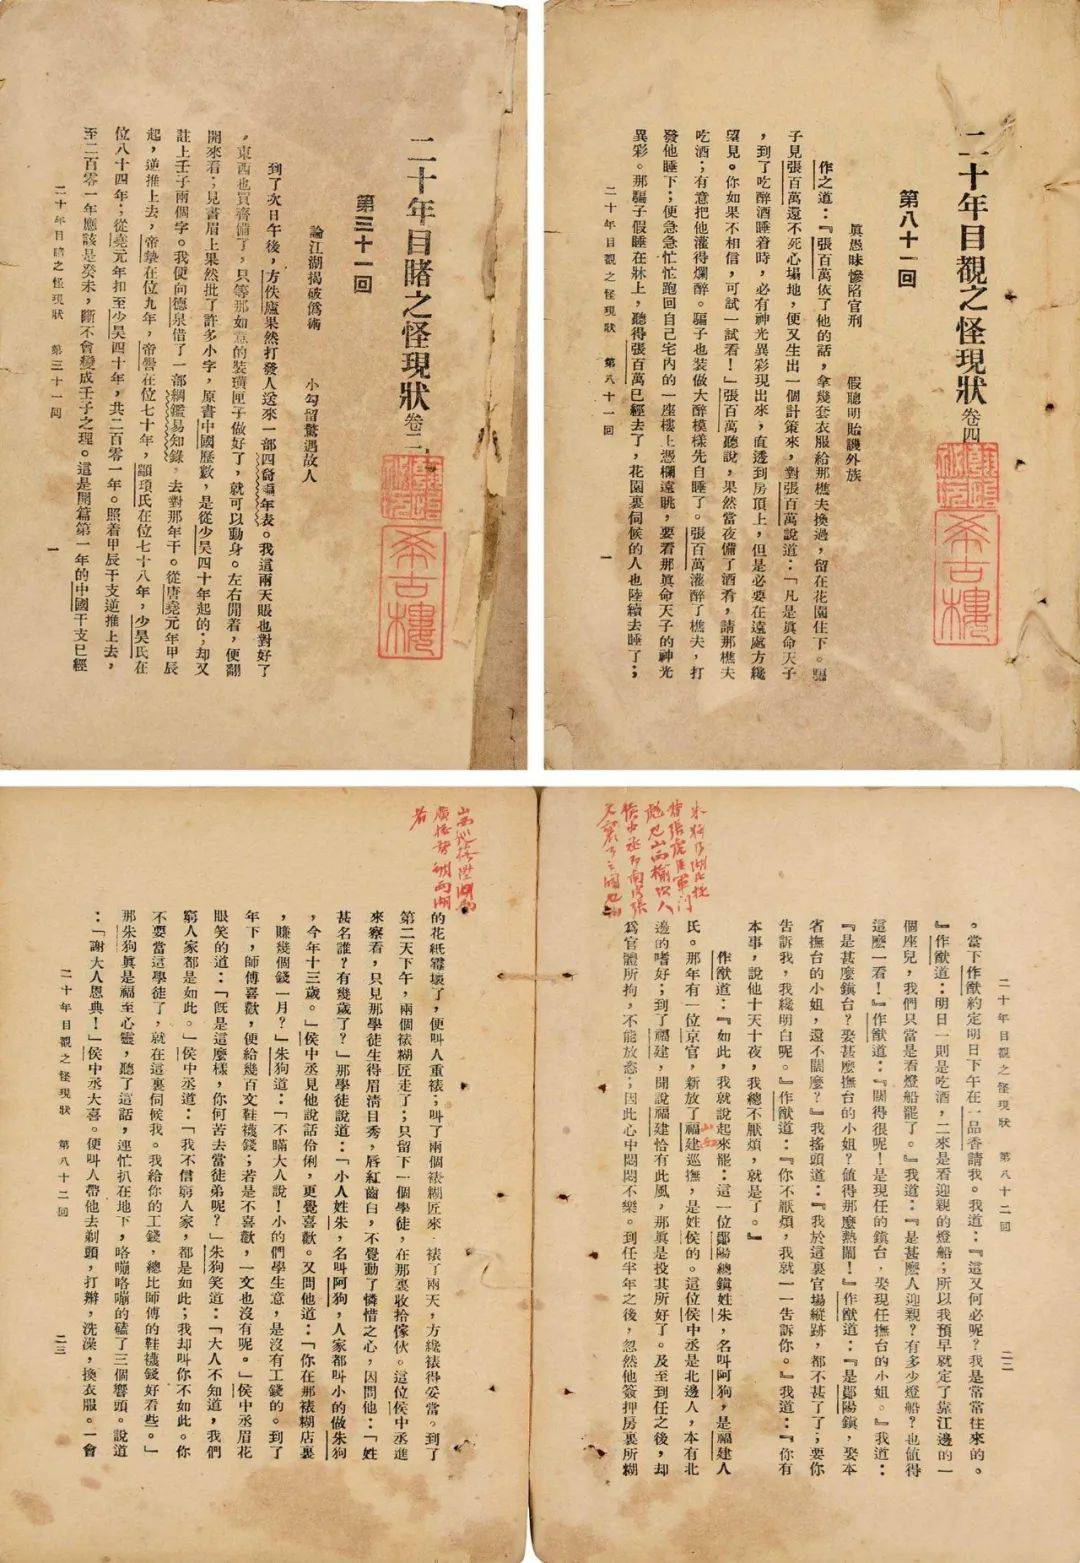 二十年目睹之怪現狀卷二
第三十一回
論江湖揭破僞術　小勾留驚遇故人
到了次日午後，方佚廬果然打發人送來一部四裔編年表。我這兩天賬也對好了
，東西也買齊備了，只等那如意的裝璜匣子做好了，就可以動身。左右閒着，便翻
開來看；見書眉上果然批了許多小字，原書中國歷數，是從少昊四十年起的；却又
註上壬子兩個字。我便向德泉借了一部綱鑑易知錄，去對那年干。從唐堯元年甲辰
起，逆推上去，帝摯在位九年，帝嚳在位七十年，顓頊氏在位七十八年，少昊氏在
位八十四年；從堯元年扣至少昊四十年，共二百零一年。照着甲辰干支逆推上去，
至二百零一年應該是癸未，斷不會變成壬子之理。這是開篇第一年的中國干支已經
二十年目睹之怪現狀　第三十一回　一
希古樓
二十年目覩之怪現狀卷四
第八十一回
眞愚昧慘陷官刑　假聰明貽譏外族
作之道：『張百萬依了他的話，拿幾套衣服給那樵夫換過，留在花園住下。騙
子見張百萬還不死心塌地，便又生出一個計策來，對張百萬說道：「凡是眞命天子
，到了吃醉酒睡着時，必有神光異彩現出來，直透到房頂上，但是必要在遠處方纔
望見。你如果不相信，可試一試看！」張百萬聽說，果然當夜備了酒肴，請那樵夫
吃酒；有意把他灌得爛醉。騙子也裝做大醉模樣先自睡了。張百萬灌醉了樵夫，打
發他睡下；便急急忙忙跑回自己宅內的一座樓上憑欄遠眺，要看那眞命天子的神光
異彩。那騙子假睡在牀上，聽得張百萬已經去了，花園裏伺候的人也陸續去睡了；
二十年目覩之怪現狀　第八十一回　一
希古樓
二十年目覩之怪現狀　第八十二回　二二
。當下作猷約定明日下午在一品香請我。我道：『這又何必呢？我是常常往來的。
』作猷道：明日一則是吃酒，二來是看迎親的燈船；所以我預早就定了靠江邊的一
個座兒，我們只當是看燈船罷了。』我道：『是甚麽人迎親？有多少燈船？也值得
這麽一看！』作猷道：『關得很呢！是現任的鎮台，娶現任撫台的小姐。』我道：
『是甚麽鎮台？娶甚麽撫台的小姐？值得那麽熱鬧！』作猷道：『是鄖陽鎮，娶本
省撫台的小姐，還不闊麽？』我搖頭道：『我於這裏官場縱跡，都不甚了了；要你
告訴我，我纔明白呢。』作猷道：『你不厭煩，我就一一告訴你。』我道：『你有
本事，說他十天十夜，我總不厭煩，就是了。』
作猷道：『如此，我就說起來罷：這一位鄖陽總鎮姓朱，名叫阿狗，是福建人
氏。那年有一位京官，新放了福建巡撫，是姓侯的。這位侯中丞是北邊人，本有北
邊的嗜好；到了福建，聞說福建恰有此風，那眞是投其所好了。及至到任之後，却
爲官體所拘，不能放恣；因此心中悶悶不樂。到任半年之後，忽然他簽押房裏所糊
的花紙霉壞了，便叫人重裱；叫了兩個裱糊匠來，裱了兩天，方纔裱得妥當。到了
第二天下午，兩個裱糊匠走了；只留下一個學徒，在那裏收拾傢伙。這位侯中丞進
來察看，只見那學徒生得眉清目秀，唇紅齒白，不覺動了憐惜之心，因問他：「姓
甚名誰？有幾歲了？」那學徒說道：「小人姓朱，名叫阿狗，人家都叫小的做朱狗
，今年十三歲。」侯中丞見他說話伶俐，更覺喜歡。又問他道：「你在那裱糊店裏
，賺幾個錢一月？」朱狗道：「不瞞大人說！小的們學生意，是沒有工錢的。到了
年下，師傅喜歡，便給幾百文鞋襪錢；若是不喜歡，一文也沒有呢。」侯中丞眉花
眼笑的道：「旣是這麽樣，你何苦去當徒弟呢？」朱狗笑道：「大人不知道，我們
窮人家都是如此。」侯中丞道：「我不信窮人家，都是如此；我却叫你不如此。你
不要當這學徒了，就在這裏伺候我。我給你的工錢，總比師傅的鞋襪錢好看些。」
那朱狗眞是福至心靈，聽了這話，連忙扒在地下，咯嘣咯嘣的磕了三個響頭。說道
：「謝大人恩典！」侯中丞大喜。便叫人帶他去剃頭，打辮，洗澡，換衣服。一會
二十年目覩之怪現狀　第八十二回　二三